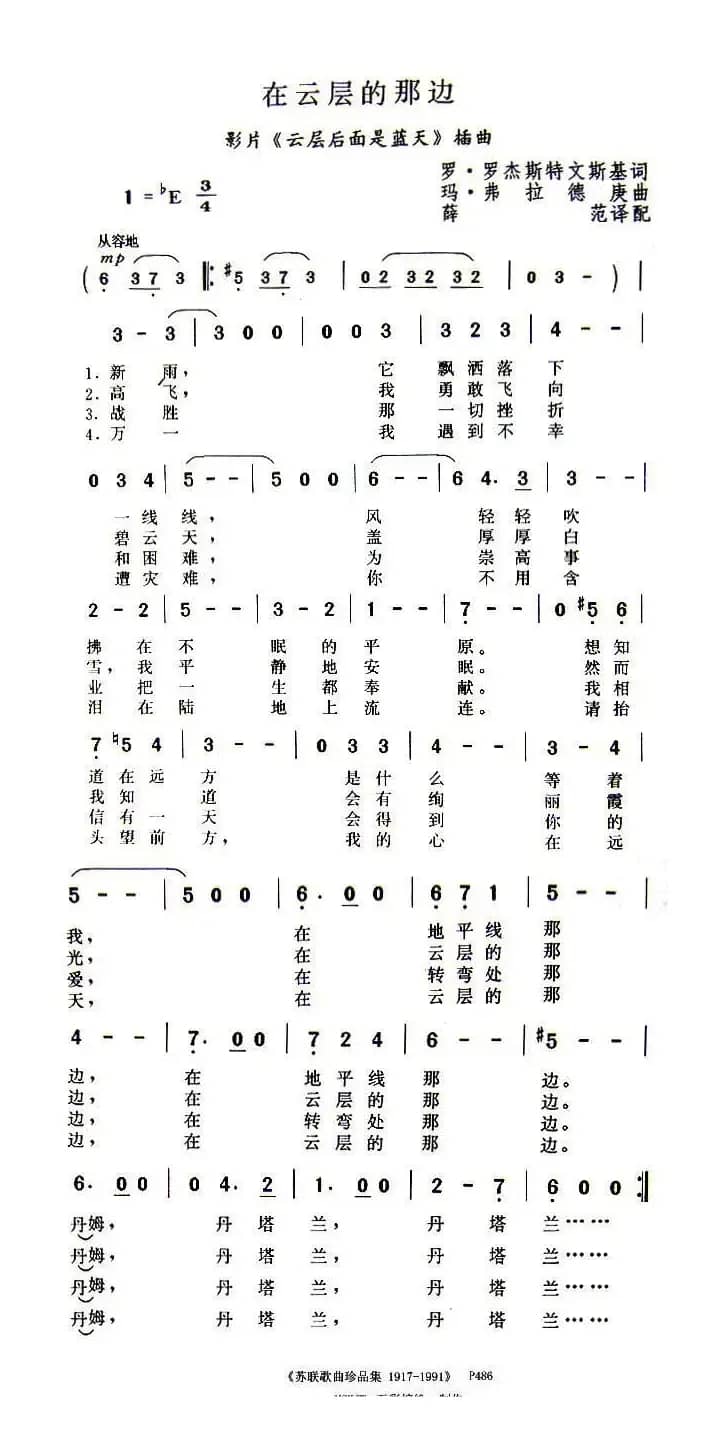 在云层的那边
影片《云层后面是蓝天》插曲
1 = ♭E 3/4
罗·罗杰斯特文斯基词
玛·弗拉德庚曲
薛范译配
从容地
mp
( 6 3 7 3 |: #5 3 7 3 | 0 2 3 2 3 2 | 0 3 - ) |
3 - 3 | 3 0 0 | 0 0 3 | 3 2 3 | 4 - - |
1. 新雨， 它飘洒落下
2. 高飞， 我勇敢飞向
3. 战胜 那一切挫折
4. 万一 我遇到不幸
0 3 4 | 5 - - | 5 0 0 | 6 - - | 6 4. 3 | 3 - - |
一线线， 风轻轻吹
碧云天， 盖厚厚白
和困难， 为崇高事
遭灾难， 你不用含
2 - 2 | 5 - - | 3 - 2 | 1 - - | 7 - - | 0 #5 6 |
拂在不眠的平原。想知
雪，我平静地安眠。然而
业把一生都奉献。我相
泪在陆地上流连。请抬
7 ♮5 4 | 3 - - | 0 3 3 | 4 - - | 3 - 4 |
道在远方 是什么等着
我知道 会有绚丽霞
信有一天 会得到你的
头望前方， 我的心在远
5 - - | 5 0 0 | 6. 0 0 | 6 7 1 | 5 - - |
我， 在地平线那
光， 在云层的那
爱， 在转弯处那
天， 在云层的那
4 - - | 7. 0 0 | 7 2 4 | 6 - - | #5 - - |
边， 在地平线那边。
边， 在云层的那边。
边， 在转弯处那边。
边， 在云层的那边。
6. 0 0 | 0 4. 2 | 1. 0 0 | 2 - 7 | 6 0 0 :|
丹姆， 丹塔兰， 丹塔兰……
丹姆， 丹塔兰， 丹塔兰……
丹姆， 丹塔兰， 丹塔兰……
丹姆， 丹塔兰， 丹塔兰……
《苏联歌曲珍品集 1917-1991》 P486